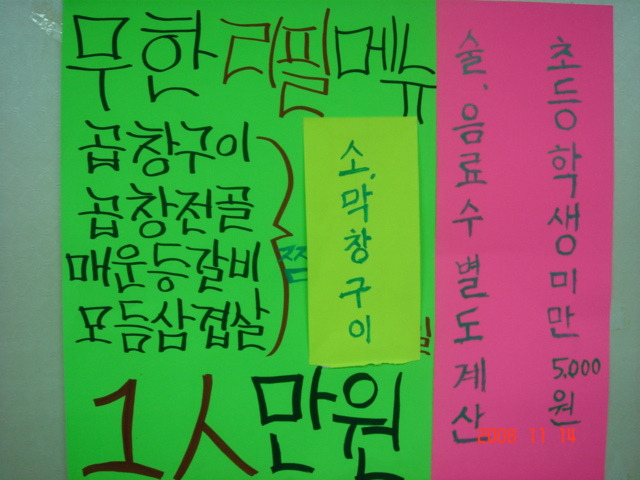 무한리필메뉴
곱창구이
곱창전골
매운등갈비찜
모듬삼겹살
소,막창구이
1人 만원
초등학생미만 5.000원
술, 음료수 별도 계산
11 14